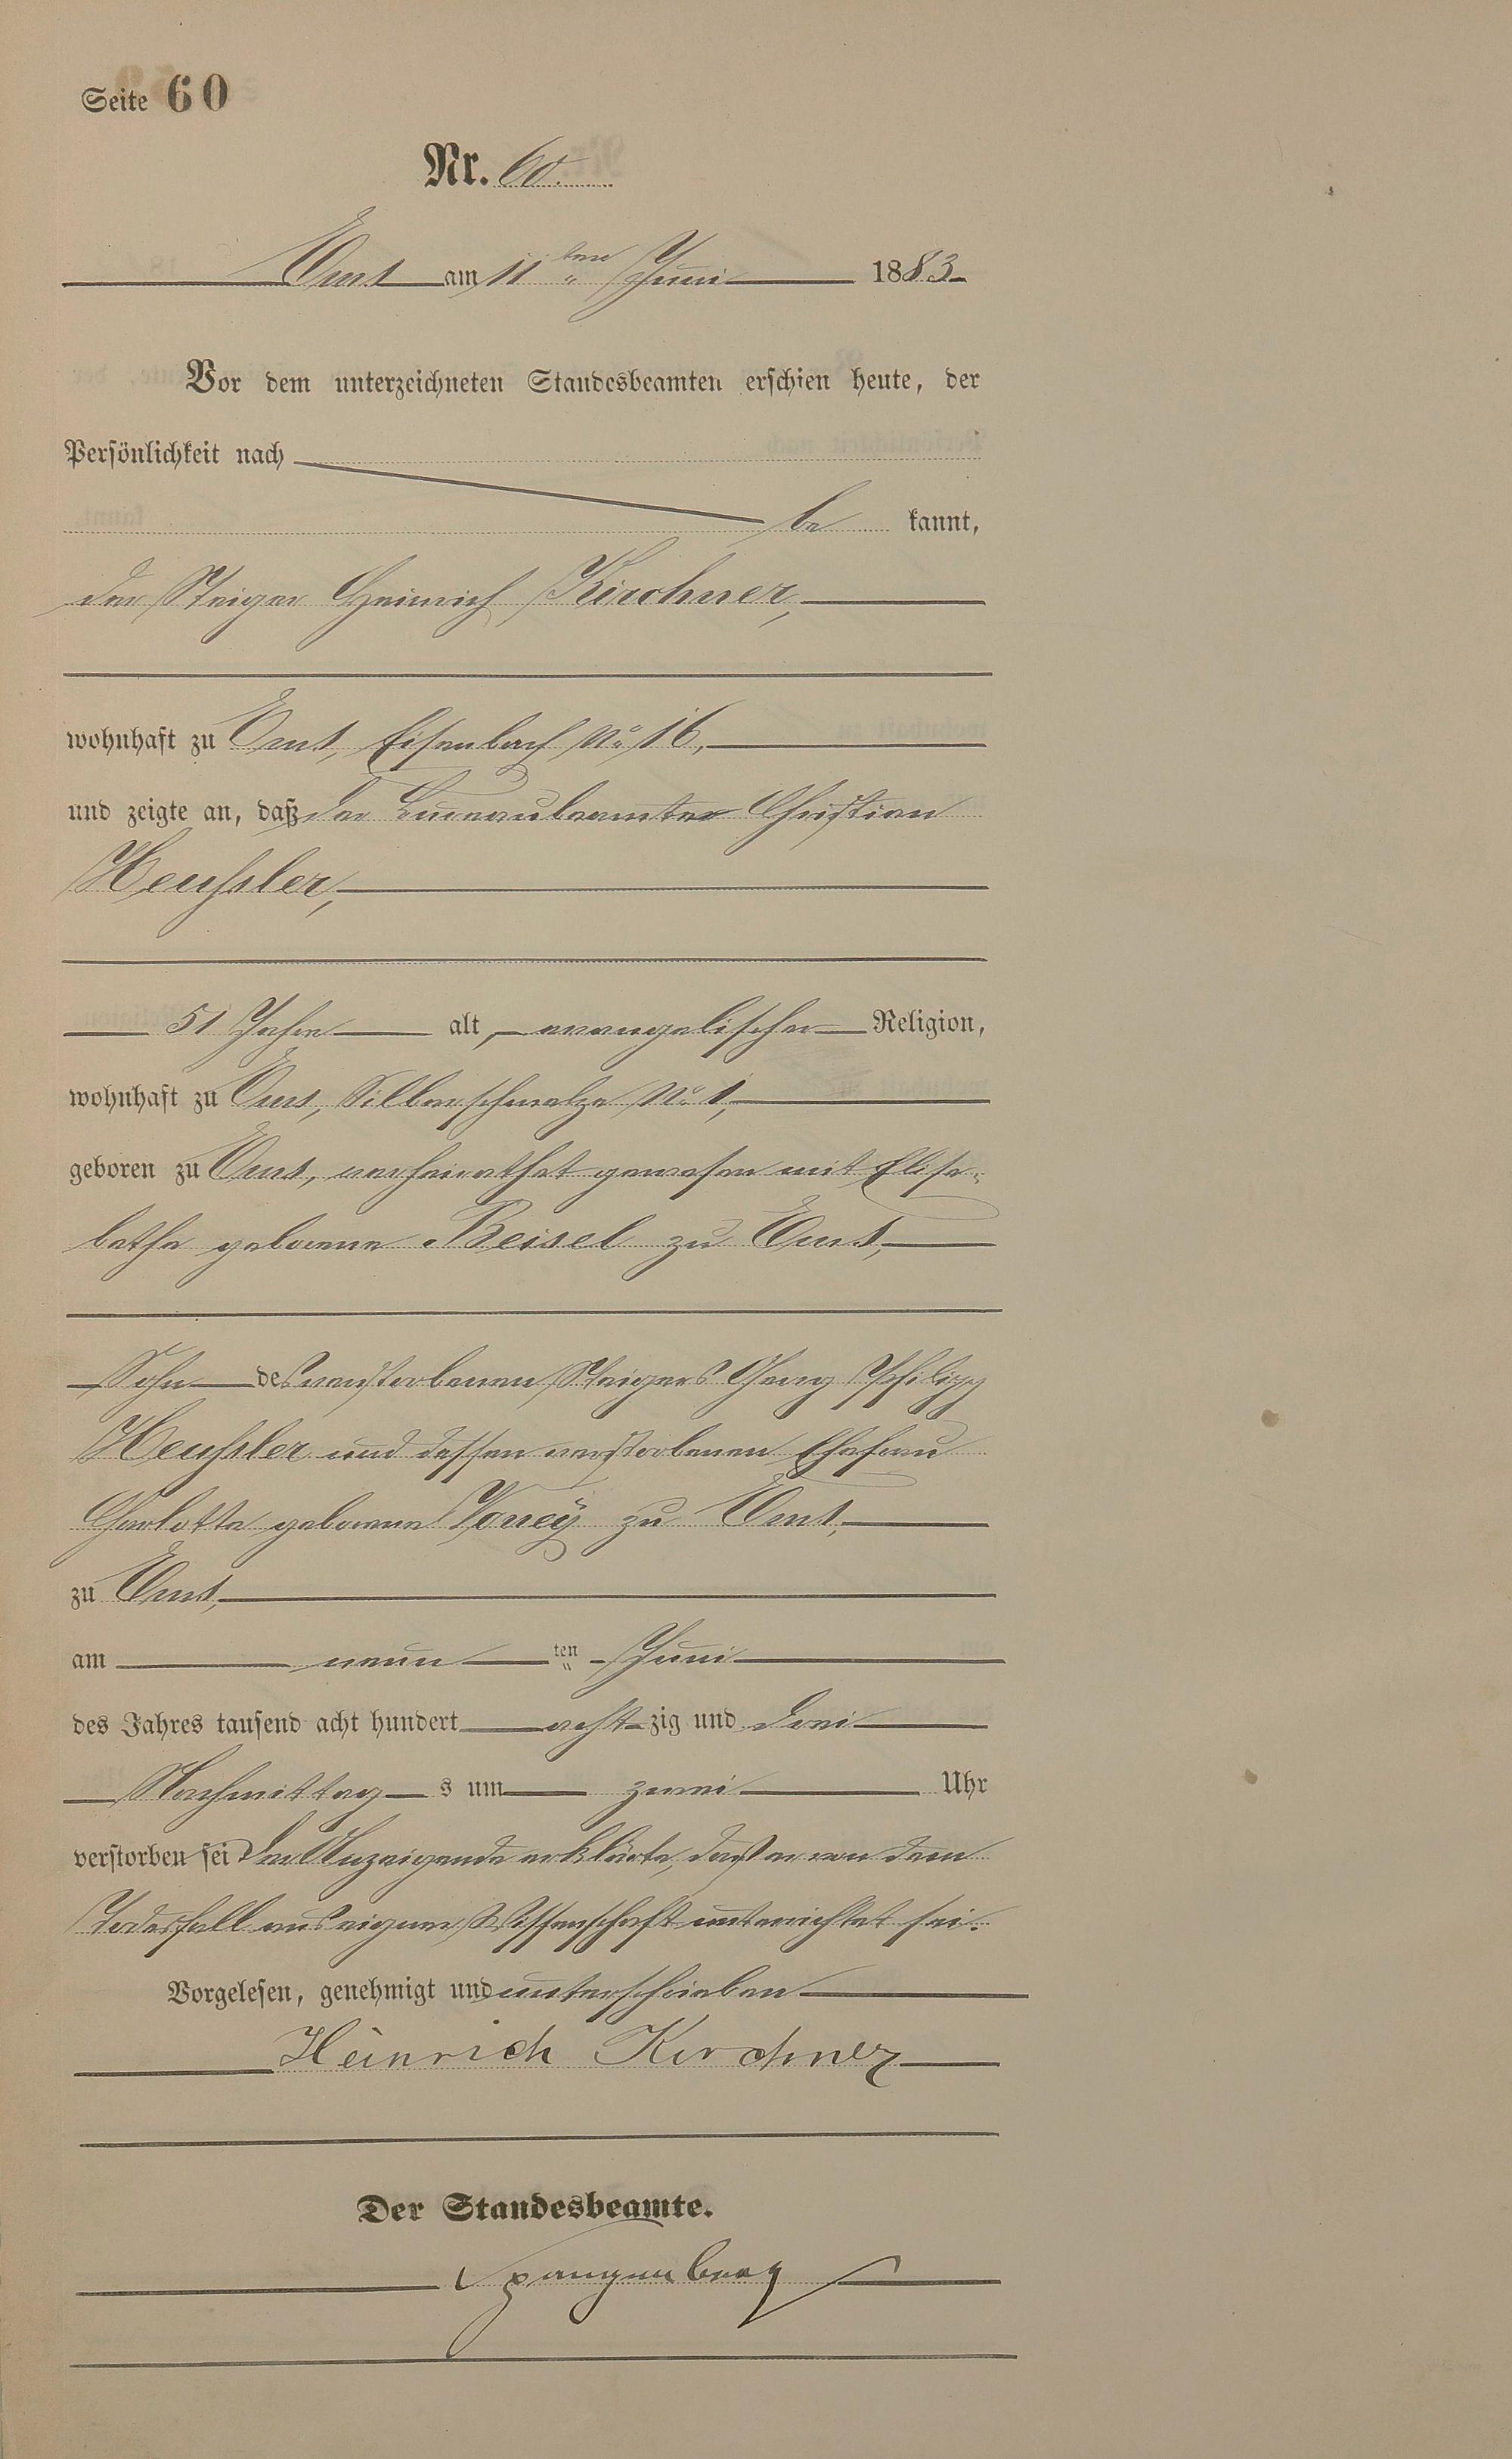 Seite 60
Nr. 60.
Ems am 11ten Juni 1883
Vor dem unterzeichneten Standesbeamten erschien heute, der
Persönlichkeit nach
be kannt,
der Steiger Heinrich Kirchner,
wohnhaft zu Ems, Eisenbach No 16,
und zeigte an, daß der Bureaubeamter Christian
Heußler,
51 Jahre alt, evangelischer Religion,
wohnhaft zu Ems, Silberschmelze No 1,
geboren zu Ems, verheirathet gewesen mit Elisa-
betha geborene Beisel zu Ems,
Sohn des verstorbenen Steigers Georg Philipp
Heußler und dessen verstorbenen Ehefrau
Charlotte geborene zu Ems,
zu Ems,
am neun ten Juni
des Jahres tausend acht hundert acht zig und drei
Nachmittag s um zwei Uhr
verstorben sei Der Anzeigende erklärte, daß er von dem
Todesfall aus eigner Wissenschaft unterrichtet sei.
Vorgelesen, genehmigt und unterschrieben
Heinrich Kirchner
Der Standesbeamte.
Spangenberg